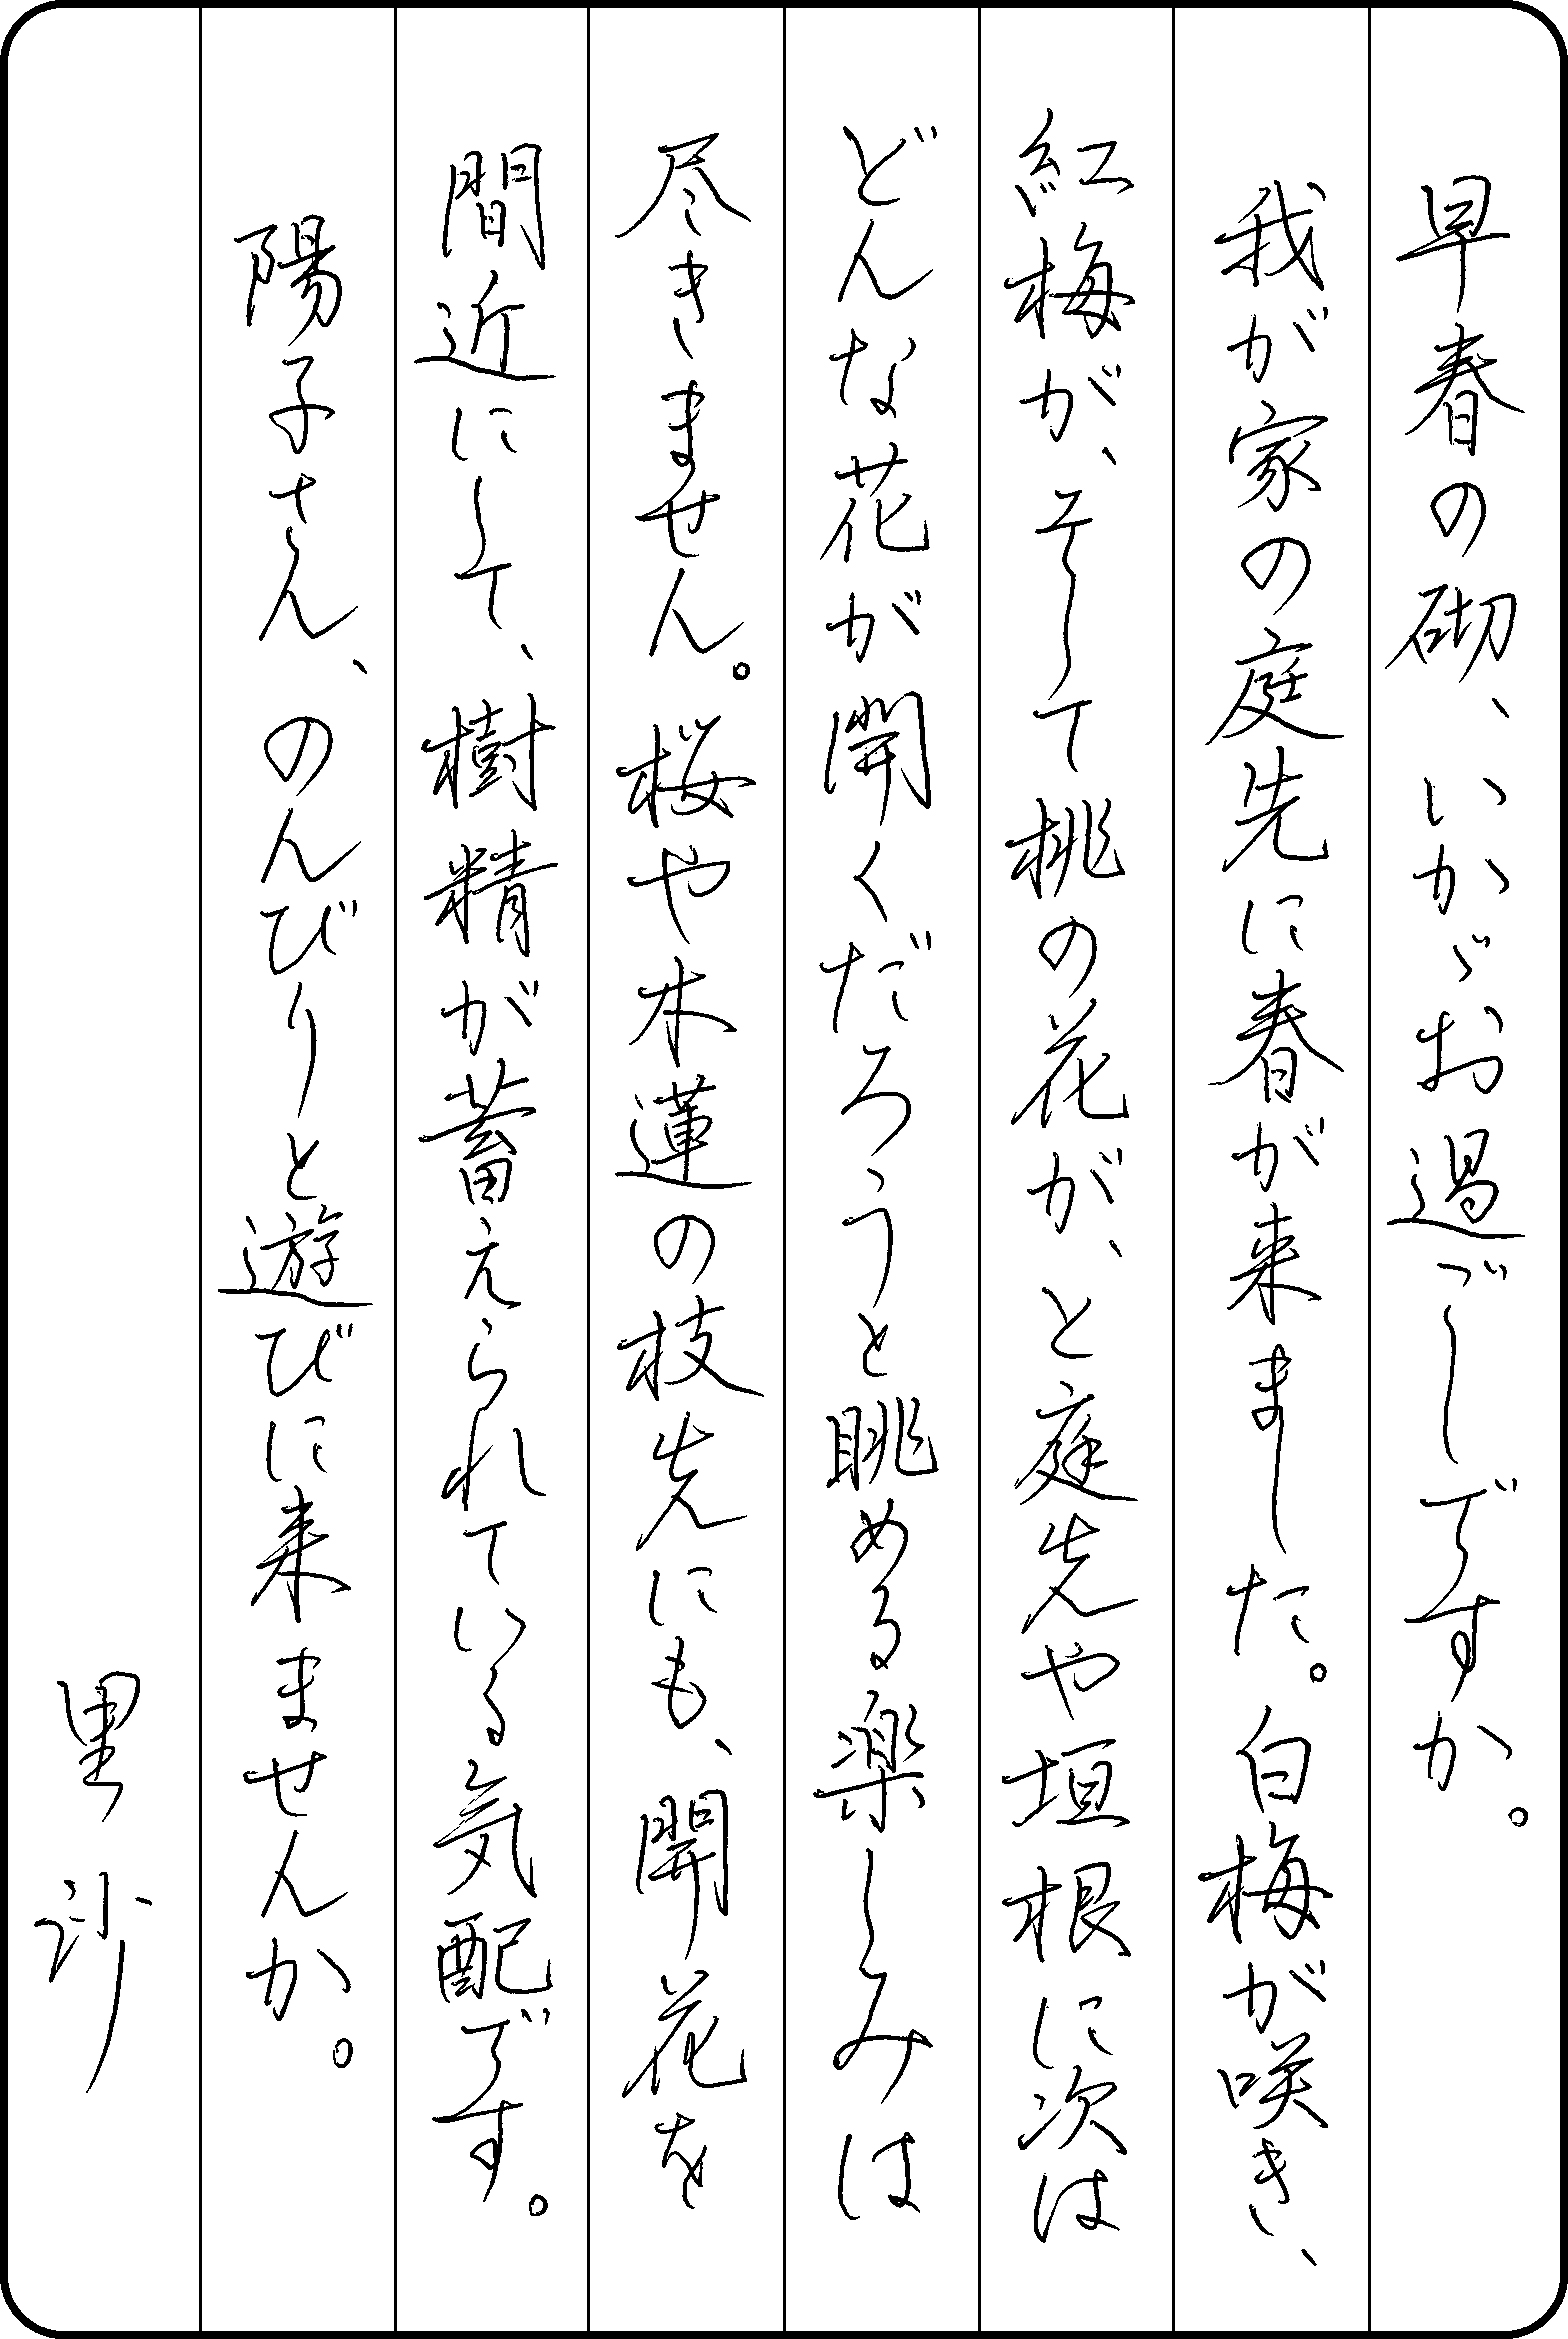 早春の砌、いかゞお過ごしですか。
我が家の庭先に春が来ました。白梅が咲き、
紅梅が、そして桃の花が、と庭先や垣根に次は
どんな花が開くだろうと眺める楽しみは
尽きません。桜や木蓮の枝先にも、開花を
間近にして、樹精が蓄えられている気配です。
陽子さん、のんびりと遊びに来ませんか。
里沙